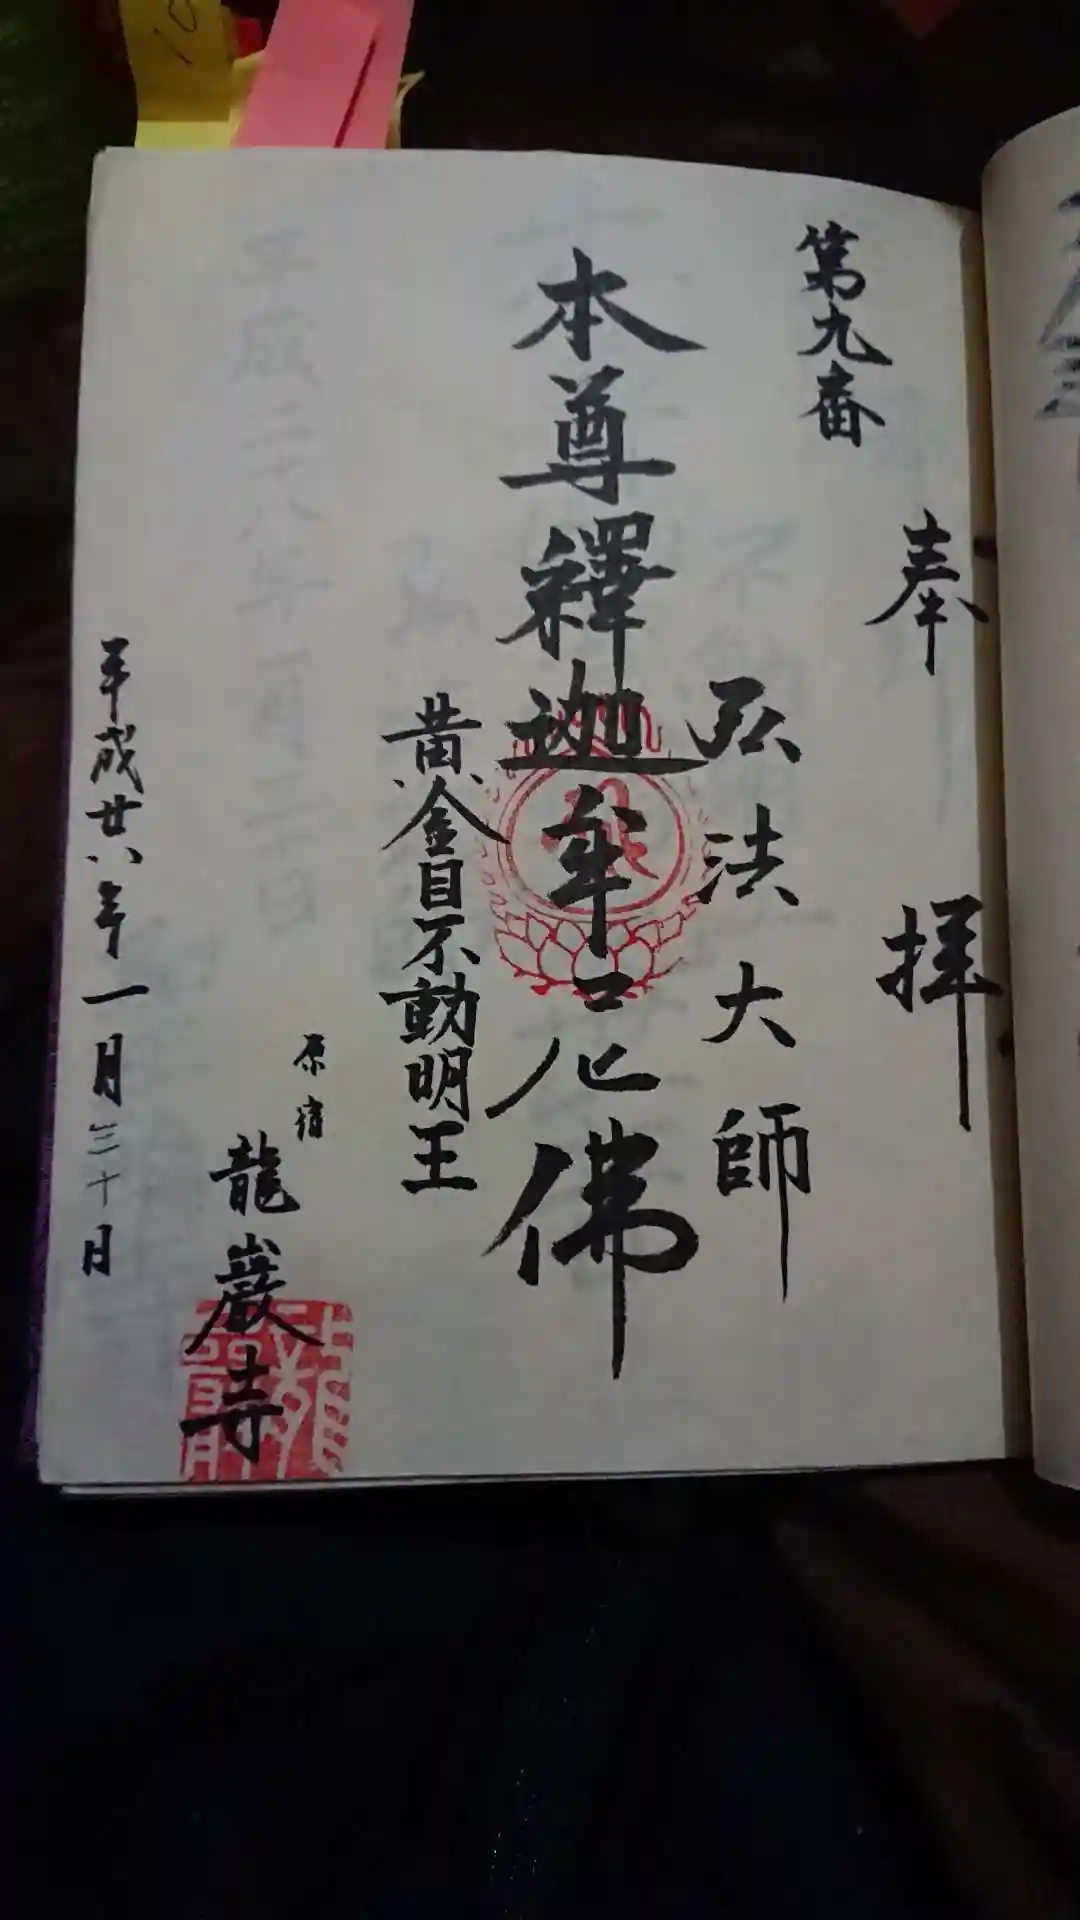 奉拝
第九番
弘法大師
本尊釋迦牟尼佛
黄金目不動明王
原宿
龍巖寺
平成廿八年一月三十日
10